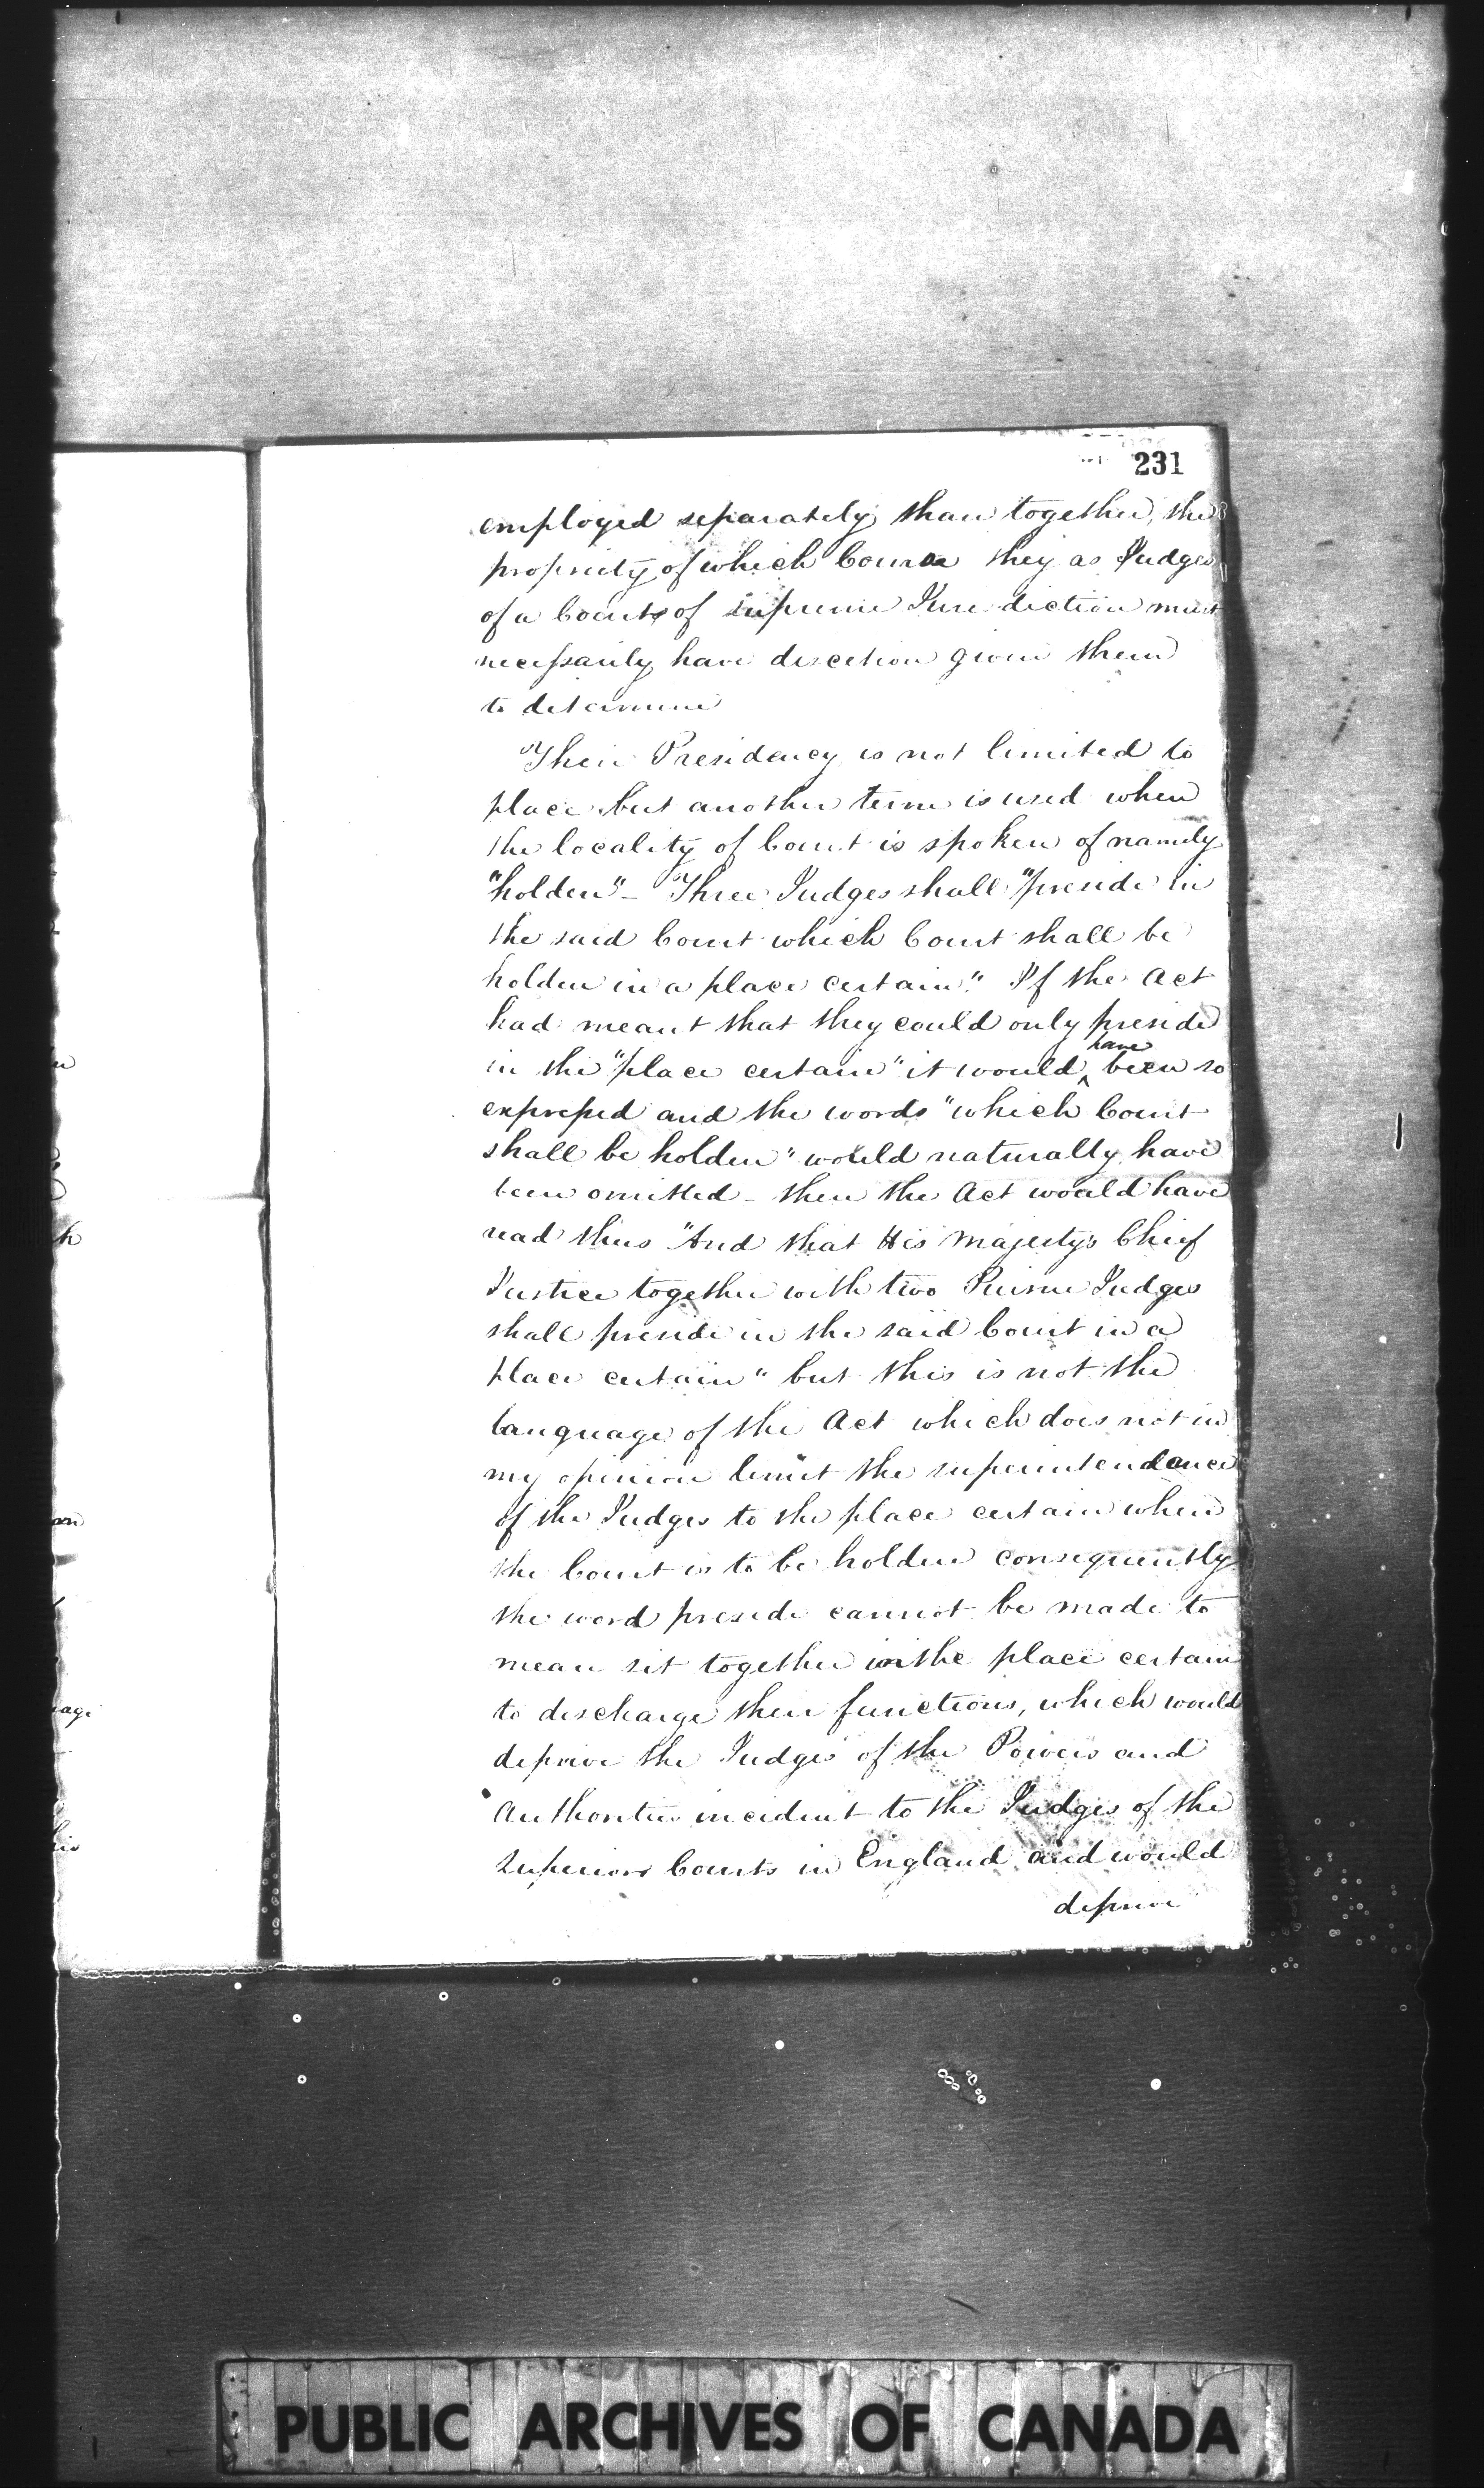 231
employed separately than together, the
propriety of which Course they as Judges
of a Court of supreme Jurisdiction must
necessarily have discetion given them
to determine
Their Presidency is not limited to
place but another term is used when
the locality of Court is spoken of namely
"holden" - Three Judges shall "preside in
the said Court which Court shall be
holden in a place certain". If the Act
had meant that they could only preside
in the "place certain" it would have been so
expressed and the words "which Court
shall be holden" would naturally have
been omitted - then the Act would have
read thus "And that His Majesty's Chief
Justice together with two Puisne Judges
shall preside in the said Court in a
place certain" but this is not the
language of the Act which does not in
my opinion limit the superintendance
of the Judges to the place certain where
the Court is to be holden consequently
the word preside cannot be made to
mean sit together in the place certain
to discharge their functions, which would
deprive the Judges of the Powers and
Authorities incident to the Judges of the
Superior Courts in England and would
deprive
PUBLIC ARCHIVES OF CANADA